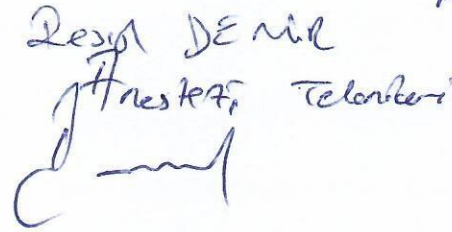 Resul DEMİR
Anestezi Teknikeri